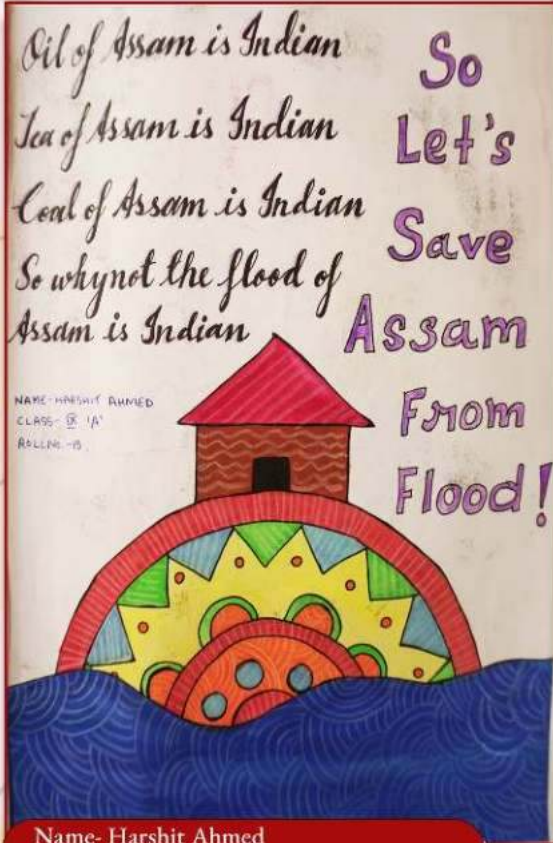 Oil of Assam is Indian
Tea of Assam is Indian
Coal of Assam is Indian
So whynot the flood of
Assam is Indian
So
Let's
Save
Assam
From
Flood!
NAME-HARSHIT AHMED
CLASS- IX 'A'
ROLLNO.-13
Name- Harshit Ahmed